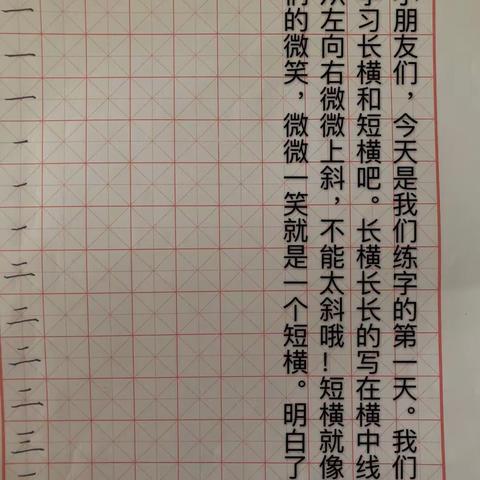 小朋友们，今天是我们练字的第一天。我们
学习长横和短横吧。长横长长的写在横中线
从左向右微微上斜，不能太斜哦！短横就像
们的微笑，微微一笑就是一个短横。明白了
一一一一一一二二二二三